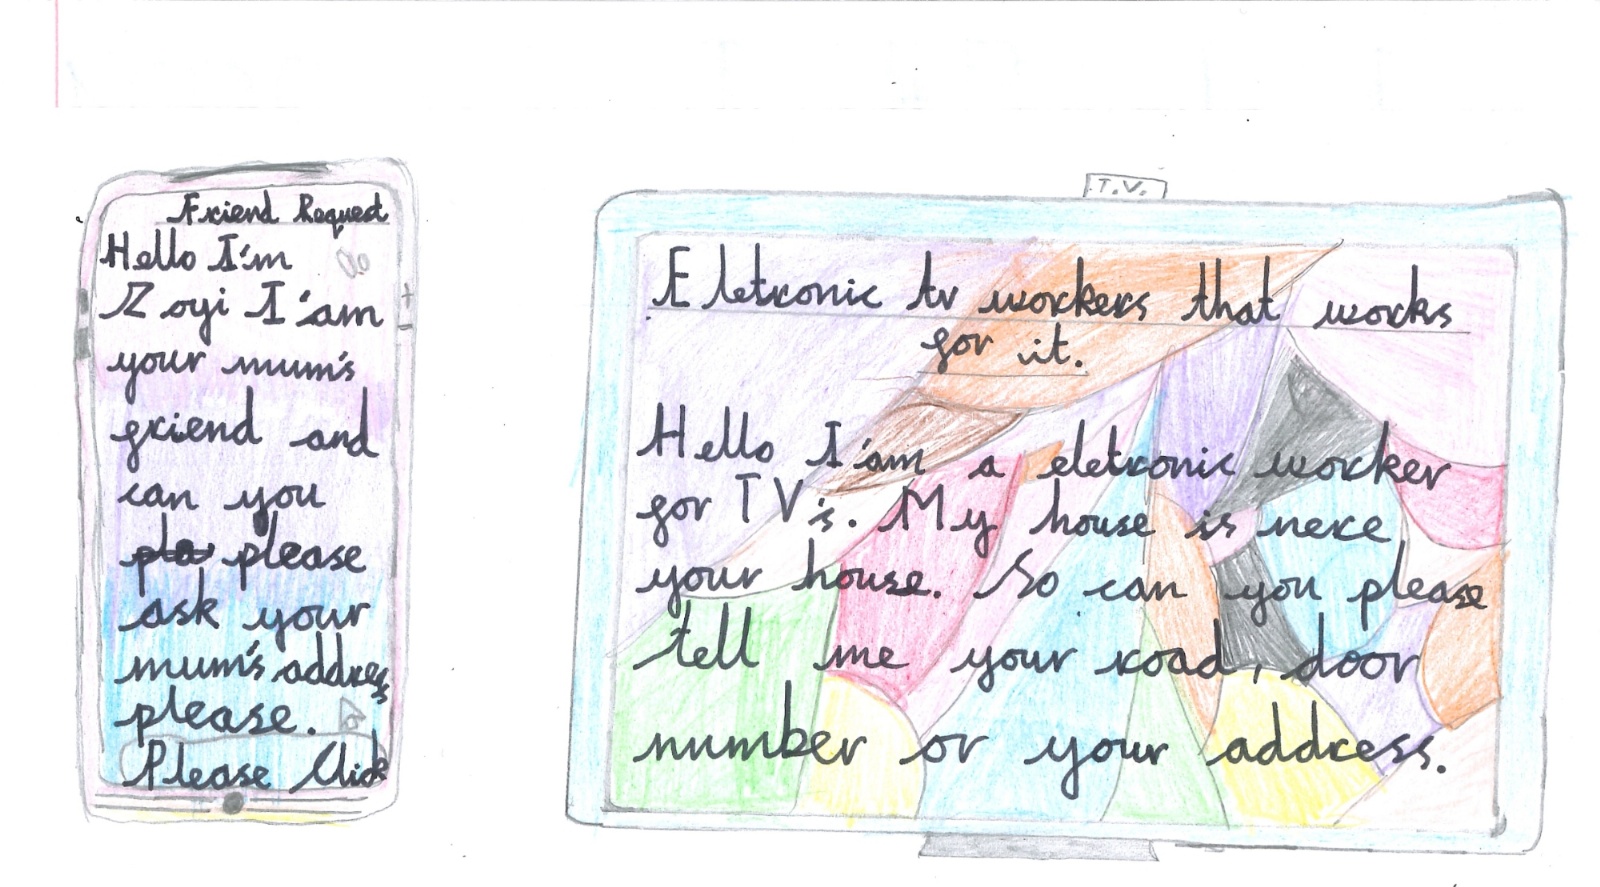 Friend Request
Hello I'm
Zoyi I'am
your mum's
friend and
can you
please
ask your
mum's address
please.
Please Click
T.V.
Eletronic tv workers that works
for it.
Hello I'am a eletronic worker
for TV's. My house is nere
your house. So can you please
tell me your road, door
number or your address.